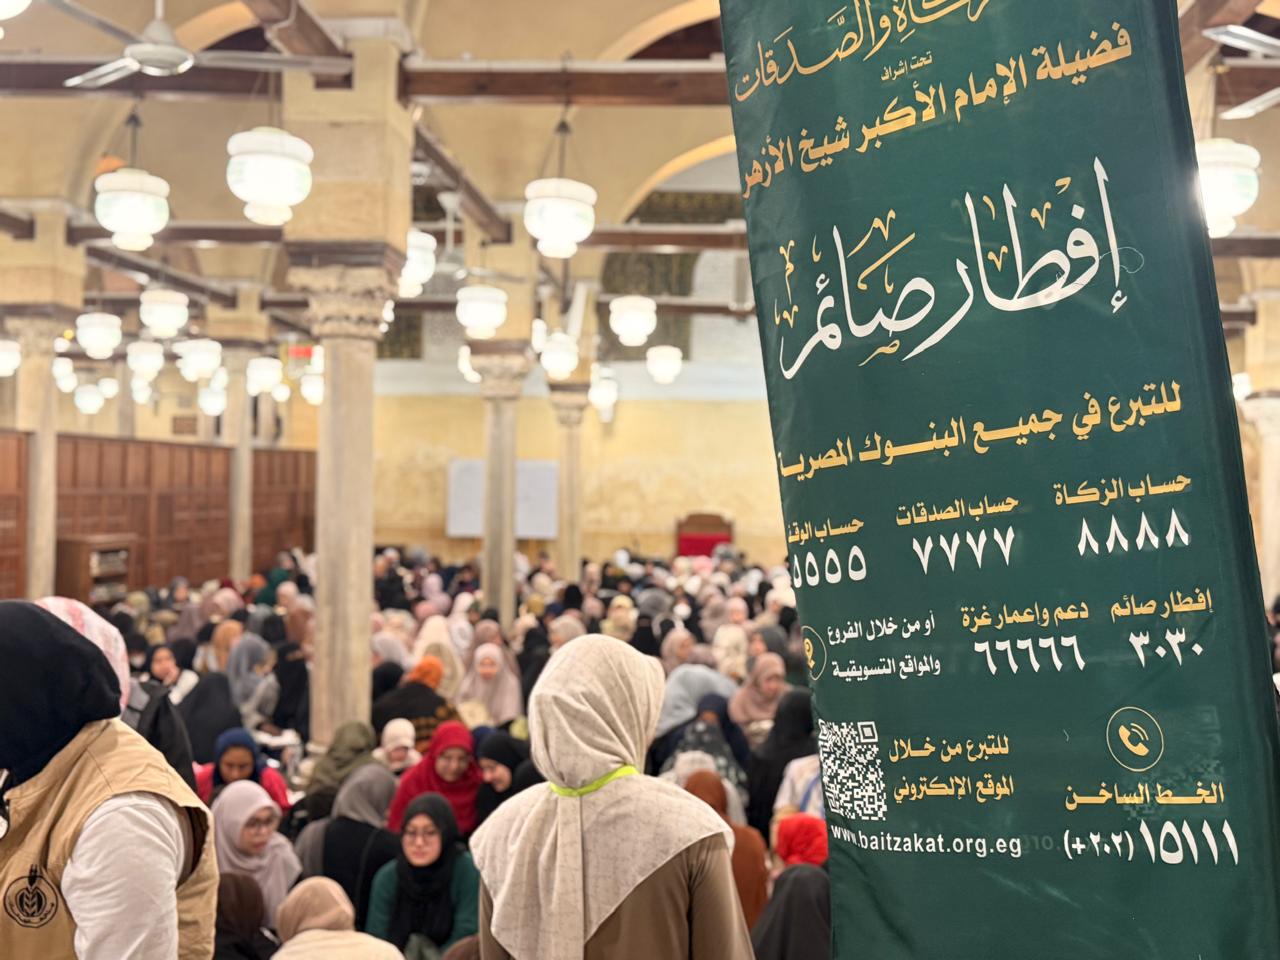 الزكاة والصدقات
تحت إشراف
فضيلة الإمام الأكبر شيخ الأزهر
إفطار صائم
للتبرع في جميع البنوك المصرية
حساب الزكاة
٨٨٨٨
حساب الصدقات
٧٧٧٧
حساب الوقف
٥٥٥٥
إفطار صائم
٣٠٣٠
دعم وإعمار غزة
٦٦٦٦٦
أو من خلال الفروع
والمواقع التسويقية
للتبرع من خلال
الموقع الإلكتروني
www.baitzakat.org.eg
الخط الساخن
(+٢٠٢) ١٥١١١